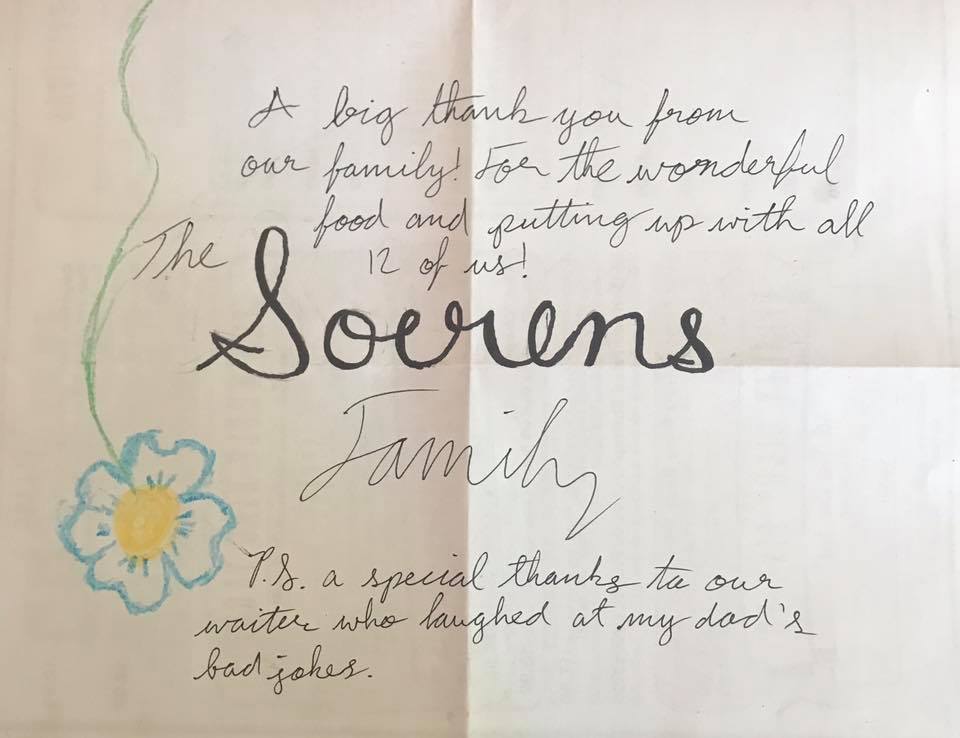 A big thank you from
our family! For the wonderful
food and putting up with all
12 of us!
The
Soerens
Family
P.S. a special thanks to our
waiter who laughed at my dad's
bad jokes.